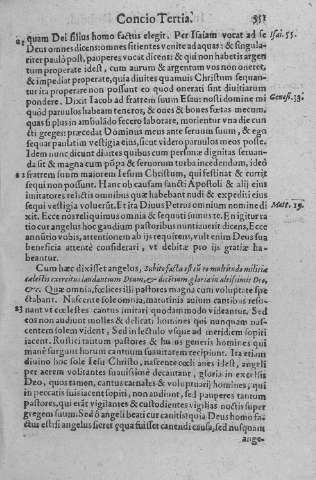 Concio Tertia. 931
quam Dei filius homo factus elegit. Per Isaiam vocat ad se Isai. 55.
Deus omnes dicens: omnes sitientes venite ad aquas: & singula-
riter paulò post, pauperes vocat dicens: & qui non habetis argen-
tum properate idest, cum aurum & argentum vos non oneret,
& impediat properate, quia diuites quamuis Christum sequan-
tur ita properare non possunt eo quod onerati sint diuitiarum
pondere. Dixit Iacob ad fratrem suum Esau: nosti domine mi Genes. 33.
quòd paruulos habeam teneros, & oues & boues fœtas mecum,
quas si plus in ambulãdo fecero laborare, morientur vna die cun
cti greges: præcedat Dominus meus ante seruum suum, & ego
sequar paulatim vestigia eius, sicut videro paruulos meos posse.
Idem nunc dicunt diuites quibus cum personæ dignitas seruan-
da sit & magna cum põpa & seruorum turba incedendum, idcò
82 fratrem suum maiorem Iesum Christum, qui festinat & currit
sequi non possunt. Hanc ob causam sancti Apostoli & alij eius
imitatores relictis omnibus quæ habebant nudi & expediti eius
sequi vestigia voluerũt. Et ita Diuus Petrus omnium nomine di Mat. 19.
xit. Ecce nos reliquimus omnia & sequuti sumus te. En igitur ra
tio cur angelus hoc gaudium pastoribus nuntiauerit dicens, Ecce
annũtio vobis, attentionem ab ijs requirens, vult enim Deus sua
beneficia attentè considerari, vt debitæ pro ijs gratiæ ha-
beantur.
Cum hæc dixisset angelus, subito facta est cũ eo multitudo militiæ
cælestis exercitus laudantium Deum, & dicentium gloria in altissimis Deo,
&c. Quæ omnia, felices illi pastores magna cum voluptate spe
ctabant. Nascente sole omnia, matutinis auium cantibus reso-
83 nant vt cœlestes cantus imitari quodammodo videantur. Sed
eos non audiunt molles & delicati homines qui nunquam nas-
centem solem vident, Sed in lectulo vsque ad meridem sopiti
iacent. Rustici tantum pastores & huius generis homines qui
manè surgunt horum cantuum suauitatem recipiunt. Ita etiam
diuino hoc sole Iesu Christo, nascente cœli aues idest, angeli
per aerem volitantes suauissimè decantant, gloria in excelsis
Deo, quos tamen, cantus carnales & voluptuarij homines, qui
in peccatis suis iacent sopiti, non audiunt, sed pauperes tantum
pastores, qui erãt vigilantes & custodientes vigilias noctis super
gregem suum. Sed ô angeli beati cur canitis? quia Deus homo fa-
ctus est? si angelus fieret equa fuisset canendi causa, sed nusquam
ange-